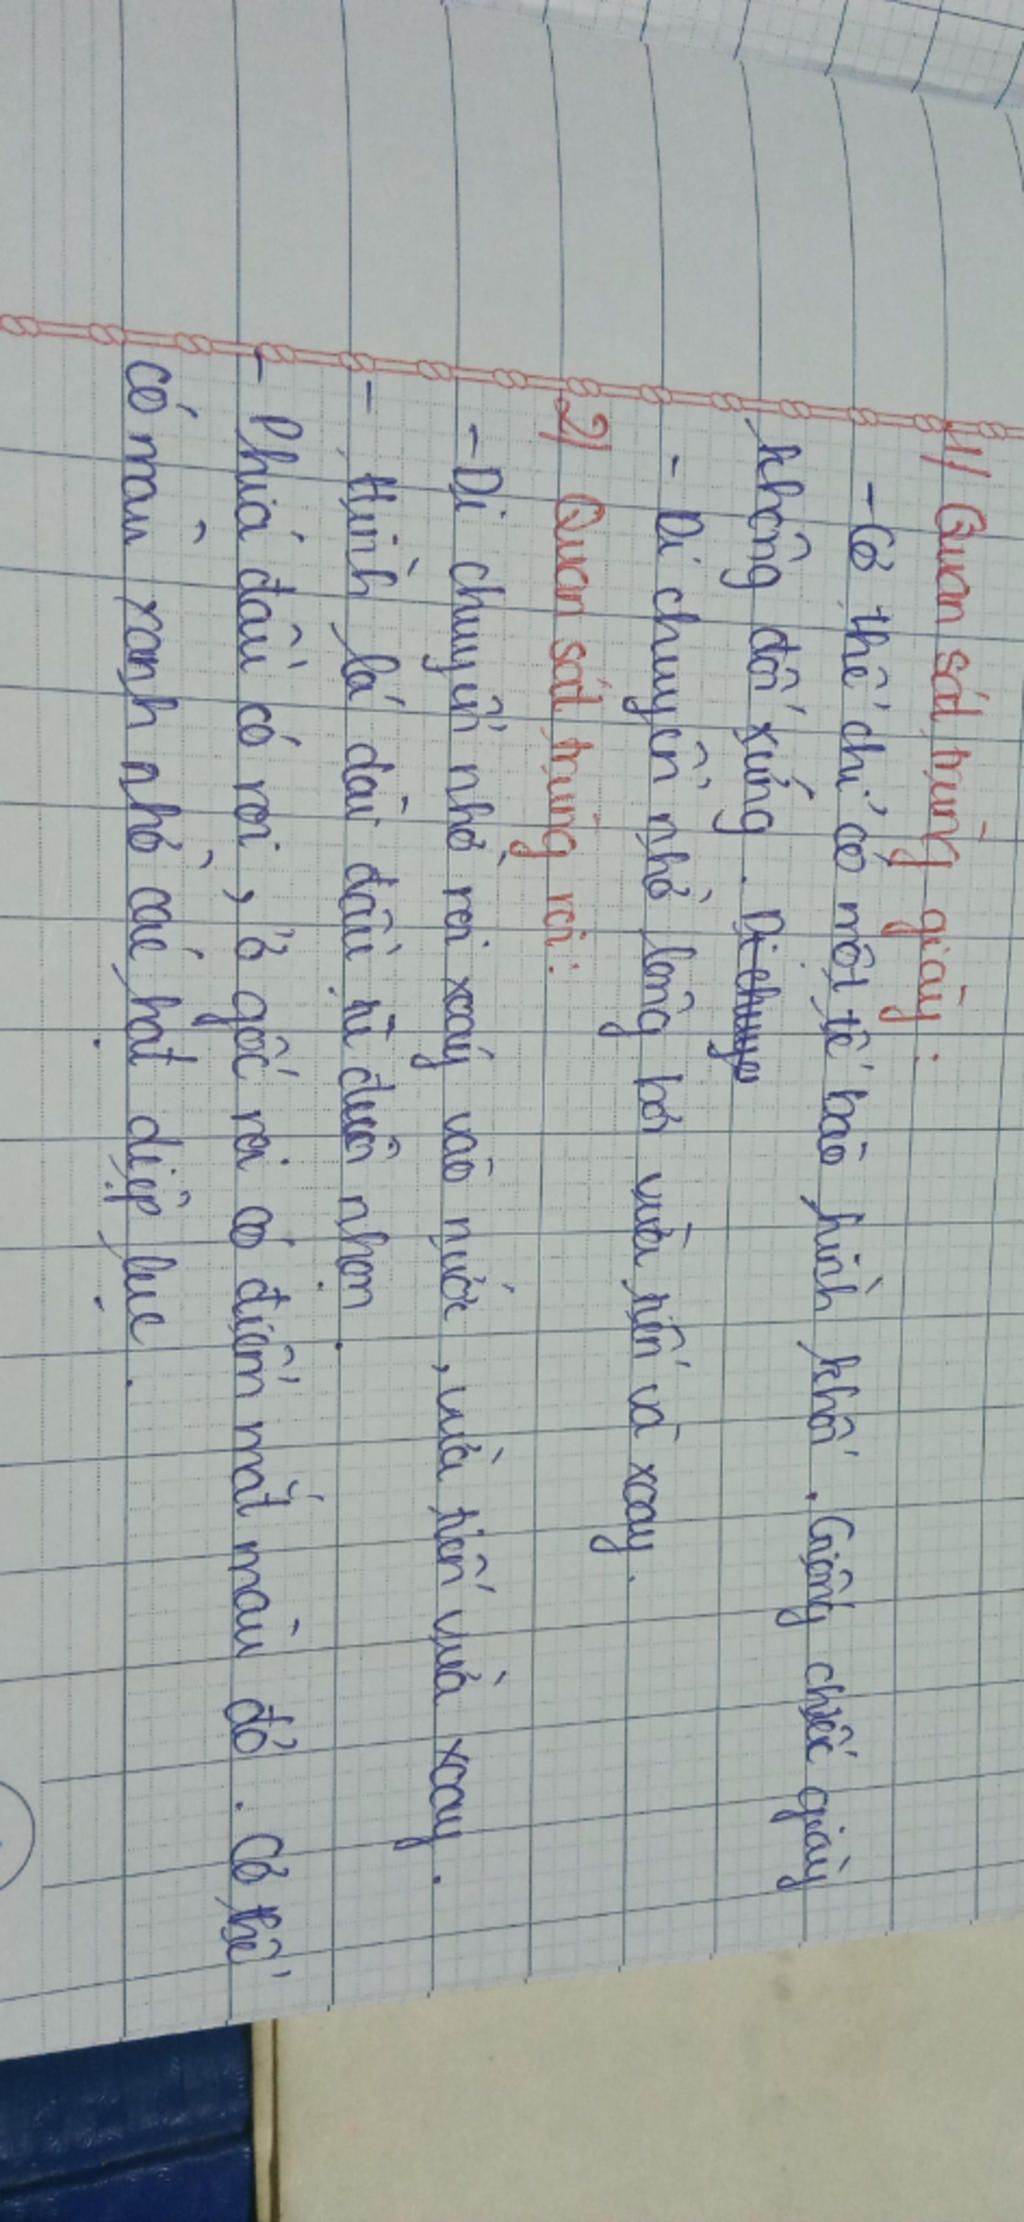 1/ Quan sát trùng giày :
- Cơ thể chỉ có một tế bào hình khối . Giống chiếc giày
không đối xứng . Di chuyể
- Di chuyển nhờ lông bơi vừa tiến và xoay .
2/ Quan sát trùng roi :
- Di chuyển nhờ roi xoáy vào nước , vừa tiến vừa xoay .
- Hình lá dài đầu tù đuôi nhọn .
- Phía đầu có roi , ở gốc roi có điểm mắt màu đỏ . Cơ thể
có màu xanh nhờ các hạt diệp lục .